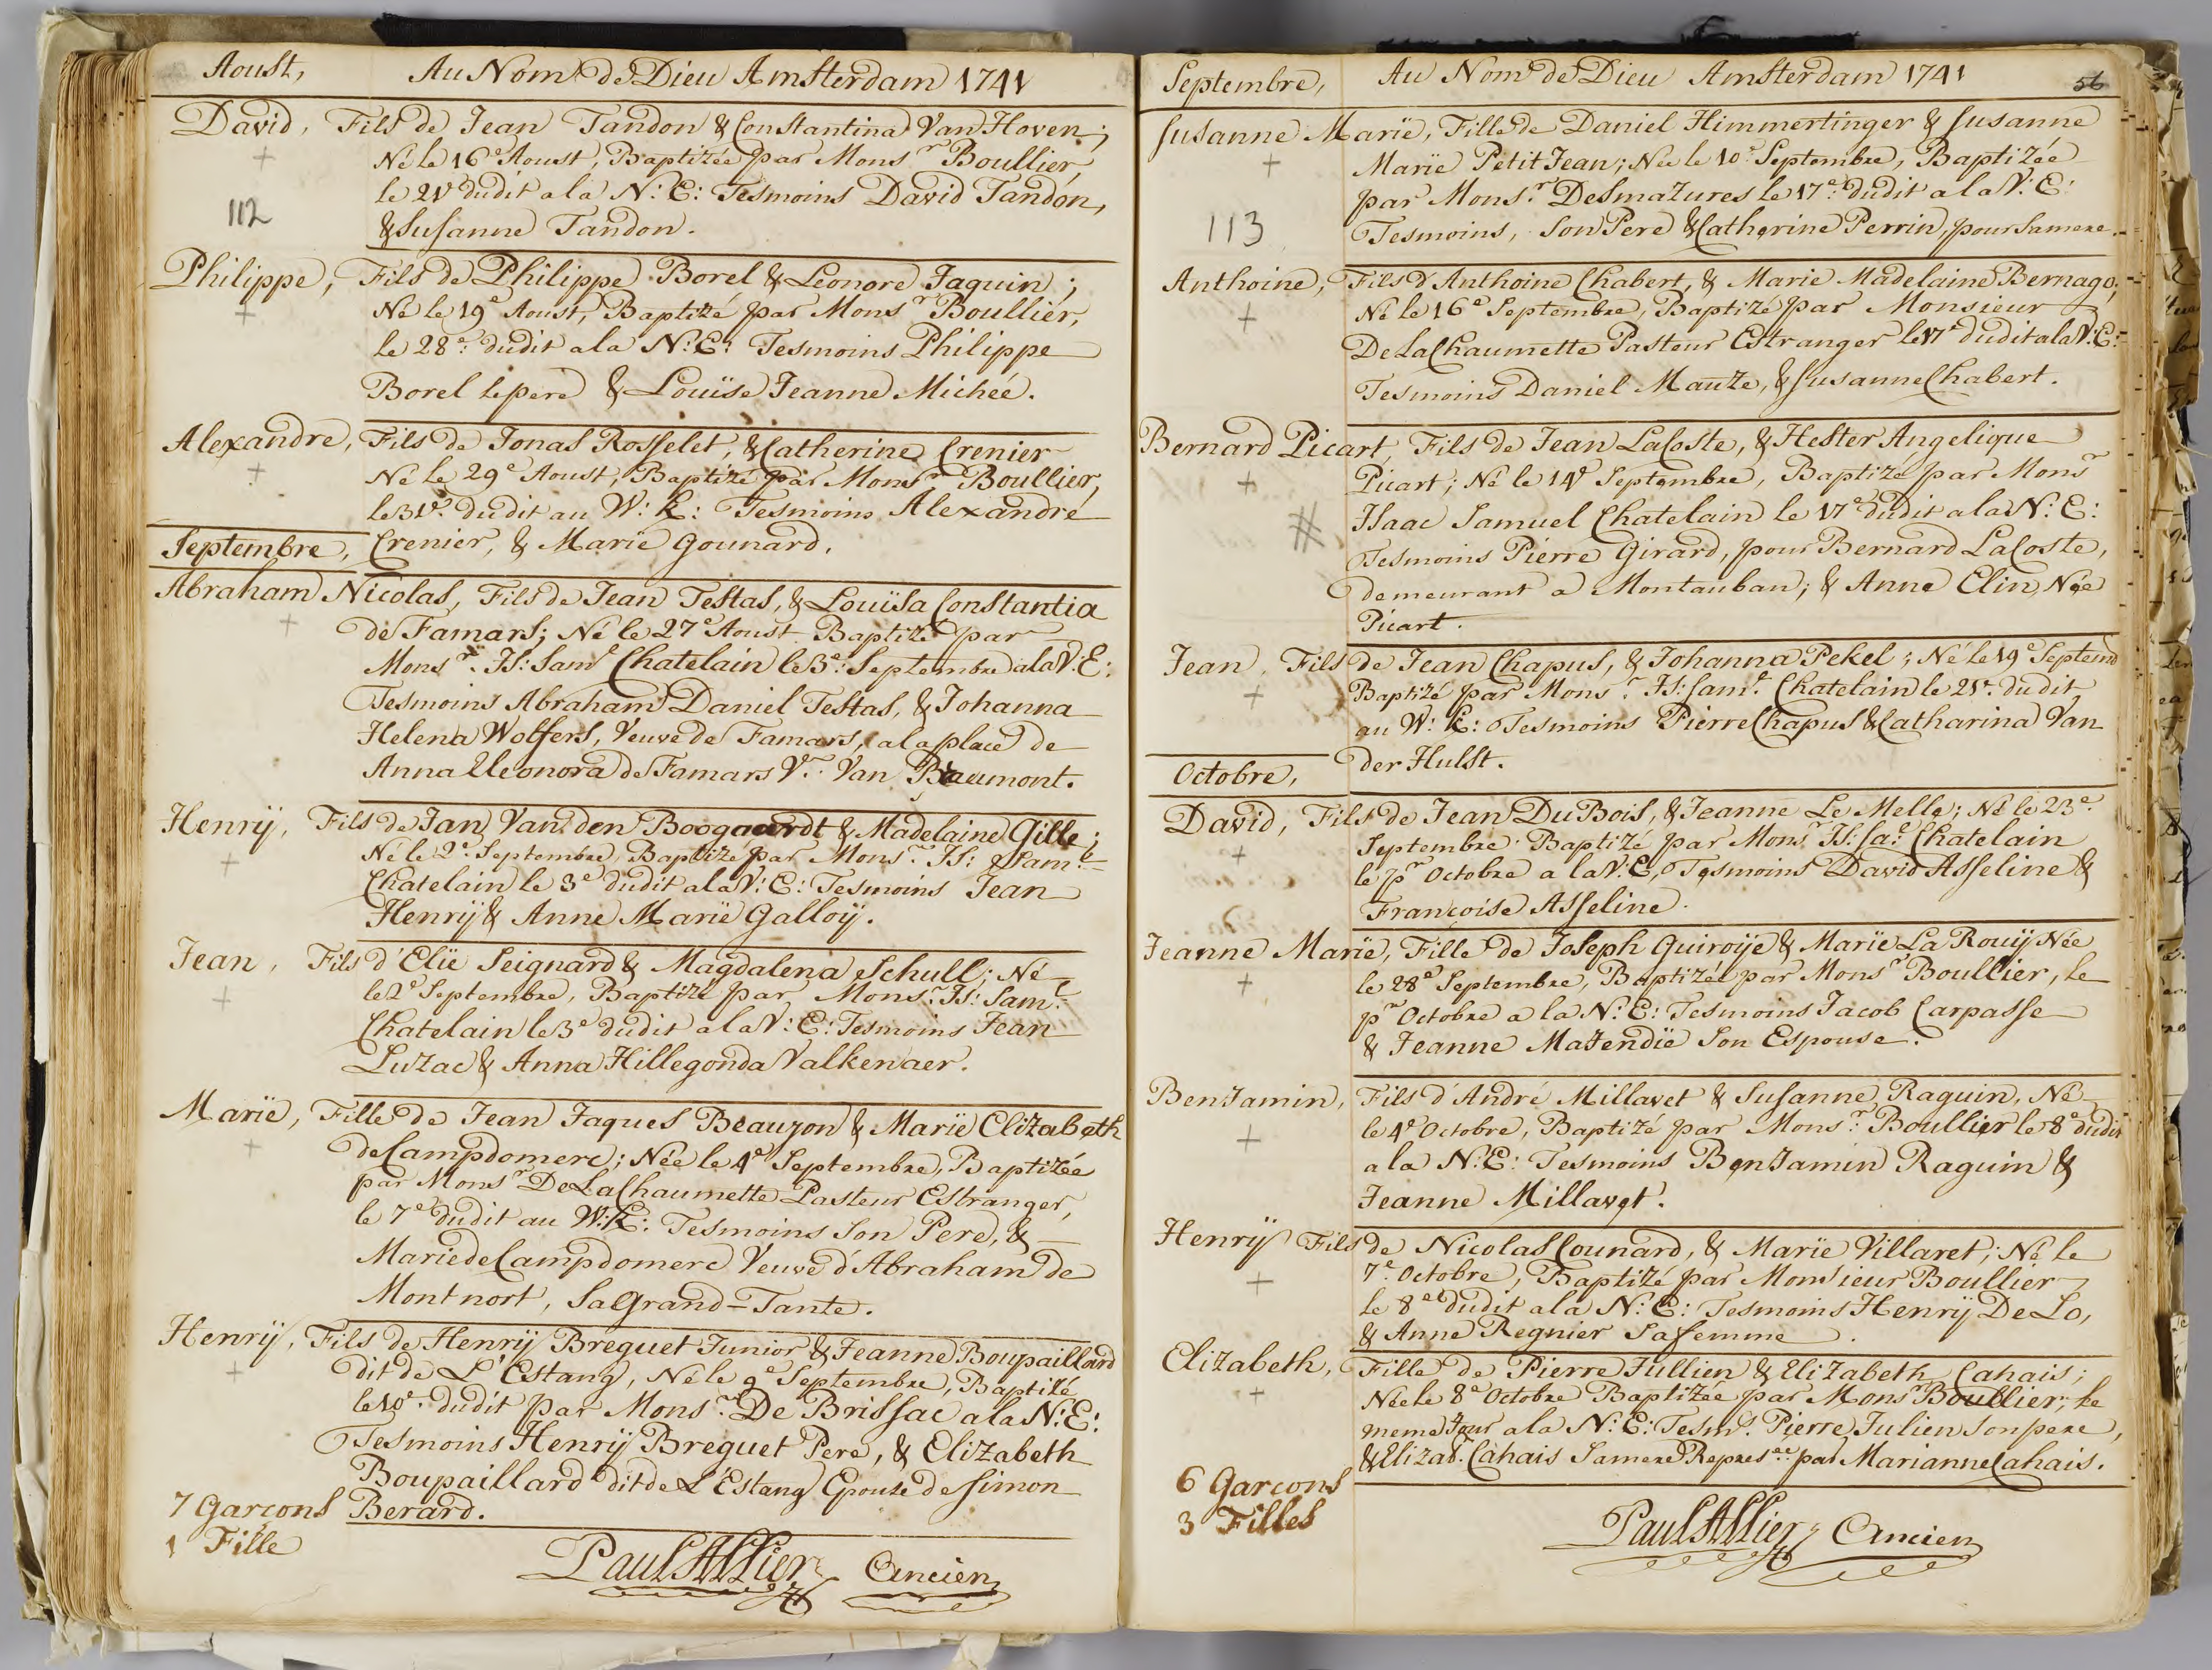 Aoust, Au Nom de Dieu Amsterdam 1741
David, Fils de Jean Tandon & Constantina Van Hoven;
Né le 16e Aoust, Baptizée par Monsr Boullier,
le 21e dudit a la N: E: Tesmoins David Tandon,
112
& Susanne Tandon.
Philippe, Fils de Philippe Borel & Leonore Jaquin;
Né le 19e Aoust, Baptizé par Monsr Boullier,
le 28e: dudit a la N: E: Tesmoins Philippe
Borel le pere & Louïse Jeanne Michée.
Alexandre, Fils de Jonas Rosselet, & Catherine Crenier
Né le 29e Aoust, Baptizé par Monsr Boullier,
le 31e. dudit au W: K: Tesmoins Alexandre
Septembre, Crenier, & Marie Gounard.
Abraham Nicolas, Fils de Jean Testas, & Louïsa Constantia
de Famars; Né le 27e Aoust Baptizé par
Monsr. Is: Saml Chatelain le 3e: Septembre a la V: E:
Tesmoins Abraham Daniel Testas, & Johanna
Helena Wolfers, Veuve de Famars, a la place de
Anna Eleonora de Famars Vr. Van Beaumont.
Henrÿ, Fils de Jan Van den Boogaardt & Madelaine Gille;
Né le 2e. Septembre, Baptizé par Monsr. Is: Saml.
Chatelain le 3e dudit a la V: E: Tesmoins Jean
Henrÿ & Anne Marie Galloÿ.
Jean, Fils d'Elie Seignard & Magdalena Schull; Né
le 2e Septembre, Baptizé par Monsr. Is: Saml.
Chatelain le 3e dudit a la V: E: Tesmoins Jean
Luzac & Anna Hillegonda Valkenaer.
Marïe, Fille de Jean Jaques Beauzon & Marïe Elizabeth
de Campdomerc; Née le 4e Septembre, Baptizée
par Monsr De La Chaumette Pasteur Estranger,
le 7e dudit au W: K: Tesmoins Son Pere, &
Marie de Campdomerc Veuve d'Abraham de
Montnort, Sa Grand-Tante.
Henrÿ, Fils de Henrÿ Breguet Junior & Jeanne Boupaillard
dit de L'Estang, Né le 9e Septembre, Baptizé
le 10e. dudit par Monsr. De Brissac a la N: E:
Tesmoins Henrÿ Breguet Pere, & Elizabeth
Boupaillard dit de L'Estang Epouze de Simon
7 Garcons Berard.
1 Fille
Paul Allier Ancien
Septembre, Au Nom de Dieu Amsterdam 1741 56
Susanne Marïe, Fille de Daniel Himmertinger & Susanne
Marïe Petit Jean; Née le 10e Septembre, Baptizée
par Monsr. Desmazures le 17e: dudit a la V: E:
113
Tesmoins, Son Pere & Catherine Perrin, pour Sa mere.
Anthoine, Fils d'Anthoine Chabert, & Marie Madelaine Bernago,
Né le 16e Septembre, Baptizé par Monsieur
De La Chaumette Pasteur Estranger le 17e dudit a la V: E:
Tesmoins Daniel Mauze, & Susanne Chabert.
Bernard Picart, Fils de Jean LaCoste, & Hester Angelique
Picart; Né le 14e Septembre, Baptizé par Monsr
Isaac Samuel Chatelain le 17e dudit a la N: E:
Tesmoins Pierre Girard, pour Bernard LaCoste,
demeurant a Montauban; & Anne Elin, Née
Picart.
Jean, Fils de Jean Chapus, & Johanna Pekel; Né le 19e Septemb
Baptizé par Monsr. Is: Saml. Chatelain le 21e. dudit
au W: K: Tesmoins Pierre Chapus & Catharina Van
der Hulst.
Octobre,
David, Fils de Jean Du Bois, & Jeanne Le Melle; Né le 23e.
Septembre. Baptizé par Monsr. Is: Sal Chatelain
le pr Octobre a la V: E, Tesmoins David Asseline &
Françoise Asseline.
Jeanne Marïe, Fille de Joseph Quiroÿe & Marïe La Rouÿ Née
le 28e Septembre, Baptizée par Monsr Boullier, le
pr Octobre a la N: E: Tesmoins Jacob Carpasse
& Jeanne Majendïe Son Espouse.
Benjamin, Fils d'André Millavet & Susanne Raguin, Né
le 4e Octobre, Baptizé par Monsr. Boullier le 8e dudit
a la N: E: Tesmoins Benjamin Raguin &
Jeanne Millavet.
Henrÿ Fils de Nicolas Counard, & Marïe Villaret; Né le
7e. Octobre, Baptizé par Monsieur Boullier
le 8e dudit a la N: E: Tesmoins Henrÿ De Lo,
& Anne Regnier Sa femme.
Elizabeth, Fille de Pierre Jullien & Elizabeth Cahais;
Née le 8e Octobre Baptizée par Monsr Boullier, le
meme Jour a la N: E: Tesms. Pierre Julien Son pere,
& Elizab. Cahais Sa mere Represee par Marianne Cahais.
6 Garcons
3 Filles
Paul Allier Ancien